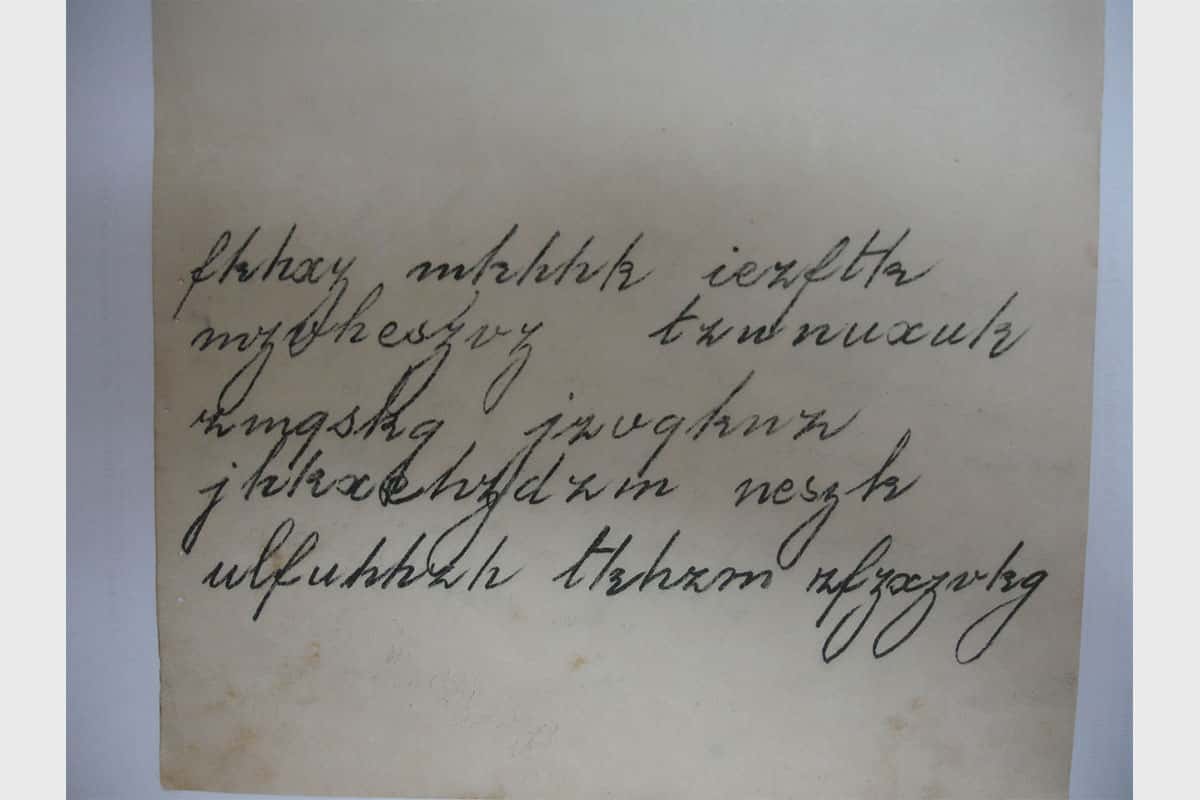 fkhxy mkhhk iezftk
mzvheszvz tzwnuxuk
zmqskg jzvqknz
neszk
ulfuhhzh tkhzm zfzxzvkg